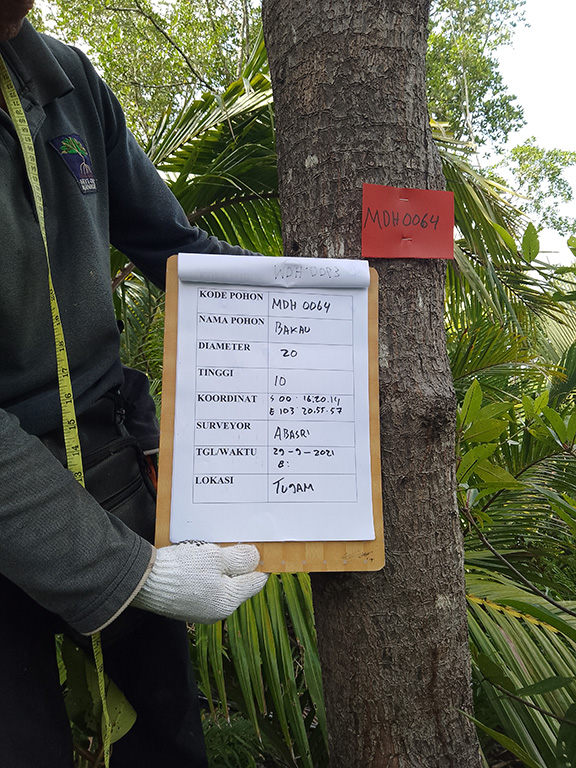 MDH 0064
KODE POHON MDH 0064
NAMA POHON BAKAU
DIAMETER 20
TINGGI 10
KOORDINAT S 00 . 16.20.14
E 103 . 20.55.57
SURVEYOR ABASRI
TGL/WAKTU 29-9-2021
8:
LOKASI TUJAM